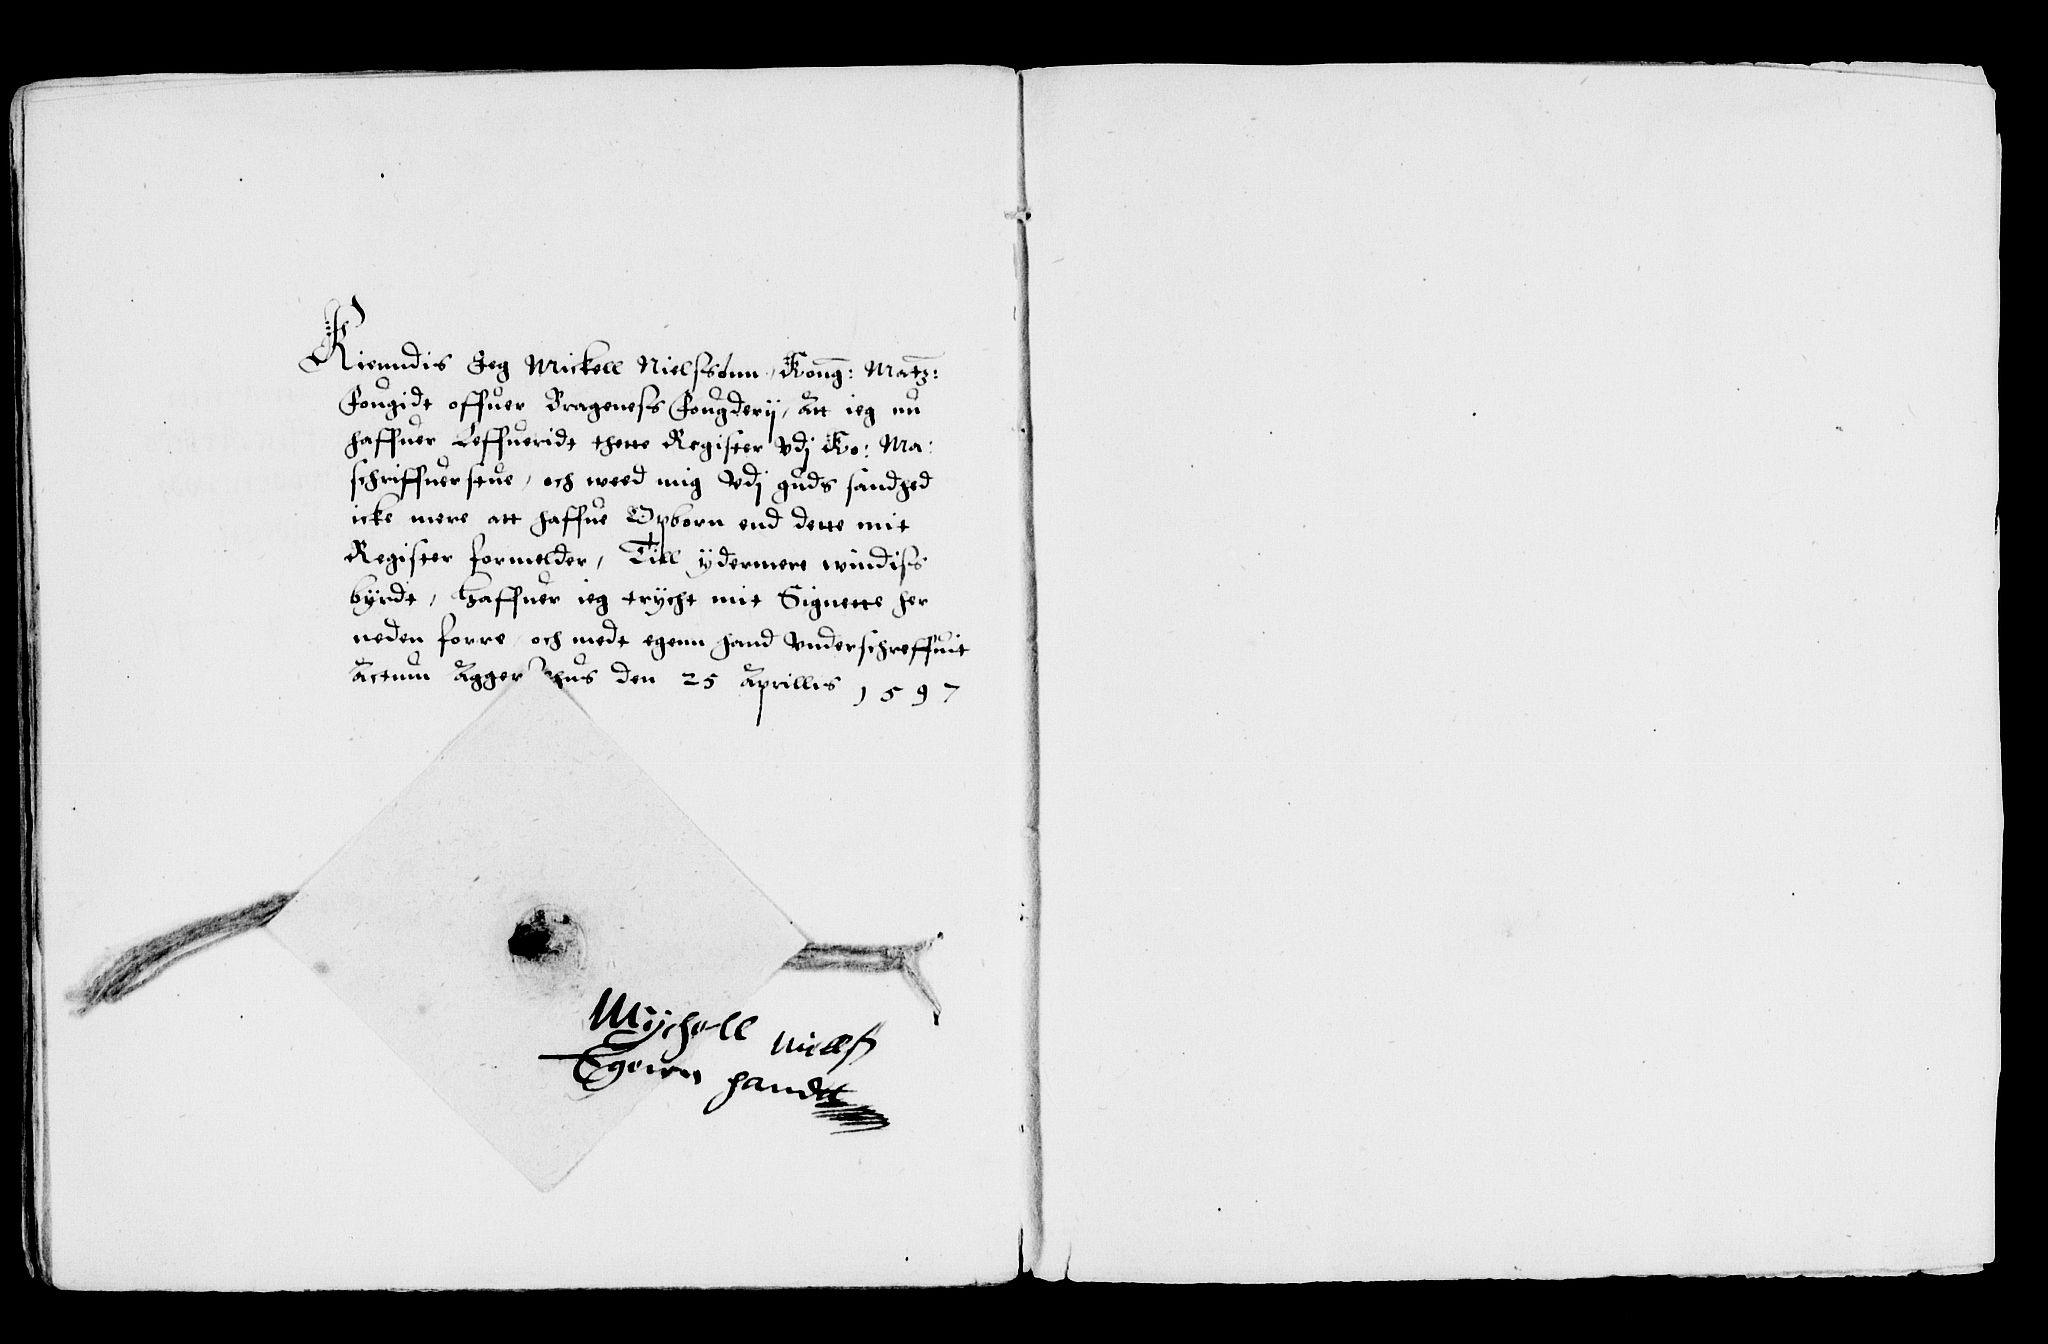 Kienndis Jeg Mickell Nielssønn, Kong: Matz:
fougidt offuer Brageness fougderij, Att ieg nu
haffuer Leffueridt thette Register vdj Ko: Ma:
schriffuerstue, och weed mig vdj guds sandhed
icke mere att haffue Opborn end dette mit
Register formelder, Till ÿdermere windiss
bÿrdt, Haffuer ieg trÿcht mit Signette her
neden forre, och medt egenn hand vnderschreffuit
Actum Aggershus den 25 Aprillis 1597
Mÿchell Niells
Egenn handt